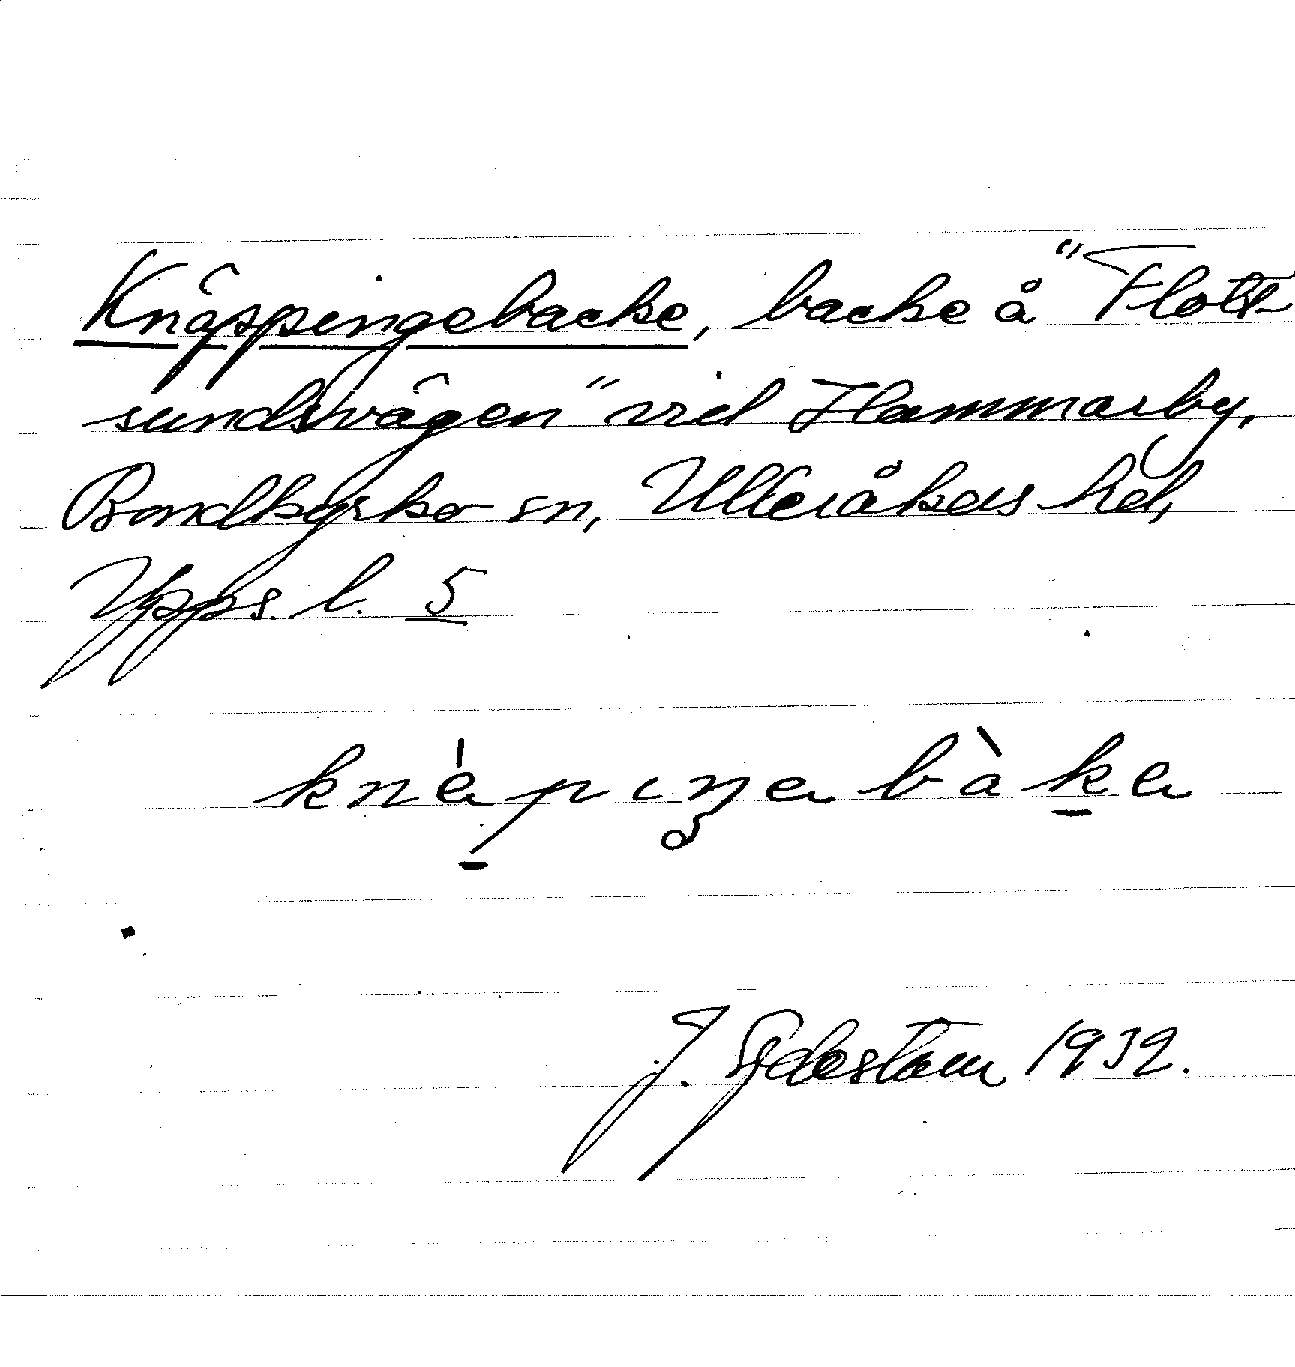 Knäppingebacke, backe å "Flott-
sundsvägen" vid Hammarby,
Bondkyrko sn, Ulleråkers hd,
Upps. l. 5
knäpiŋebàke
J. Sjdestam 1932.